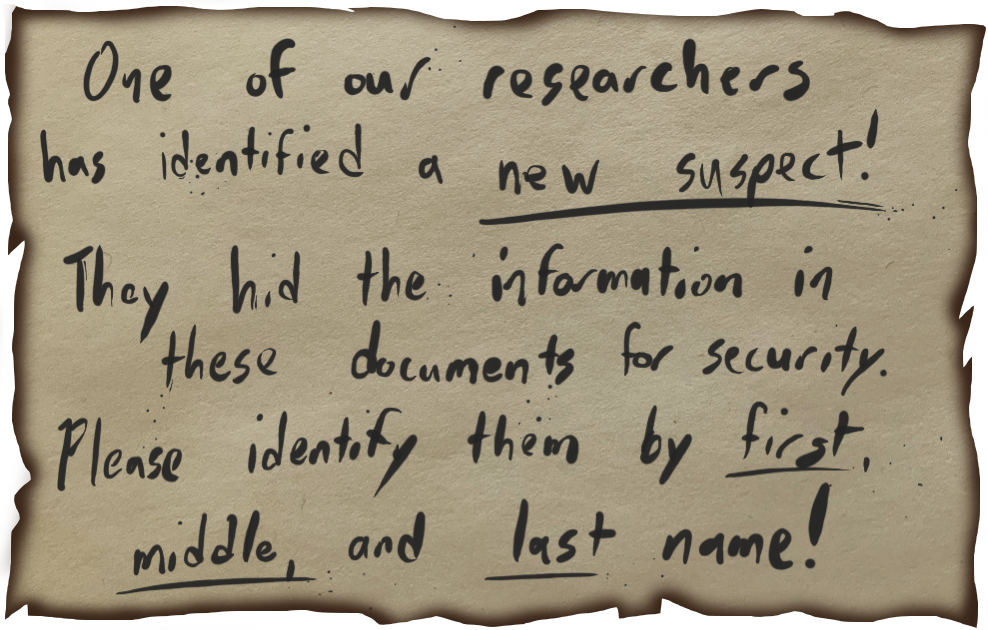 One of our researchers
has identified a new suspect!
They hid the information in
these documents for security.
Please identify them by first,
middle, and last name!